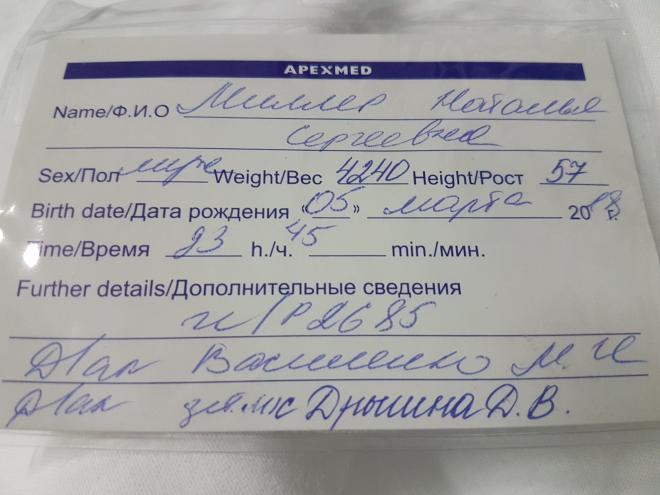 APEXMED
Name/Ф.И.О Миллер Наталья
Сергеевна
Sex/Пол муж Weight/Вес 4240 Height/Рост 57
Birth date/Дата рождения «05» марта 2018 г.
Time/Время 23 h./ч. 45 min./мин.
Further details/Дополнительные сведения
и/р 2685
Василенко М.И
Дрынина Д.В.